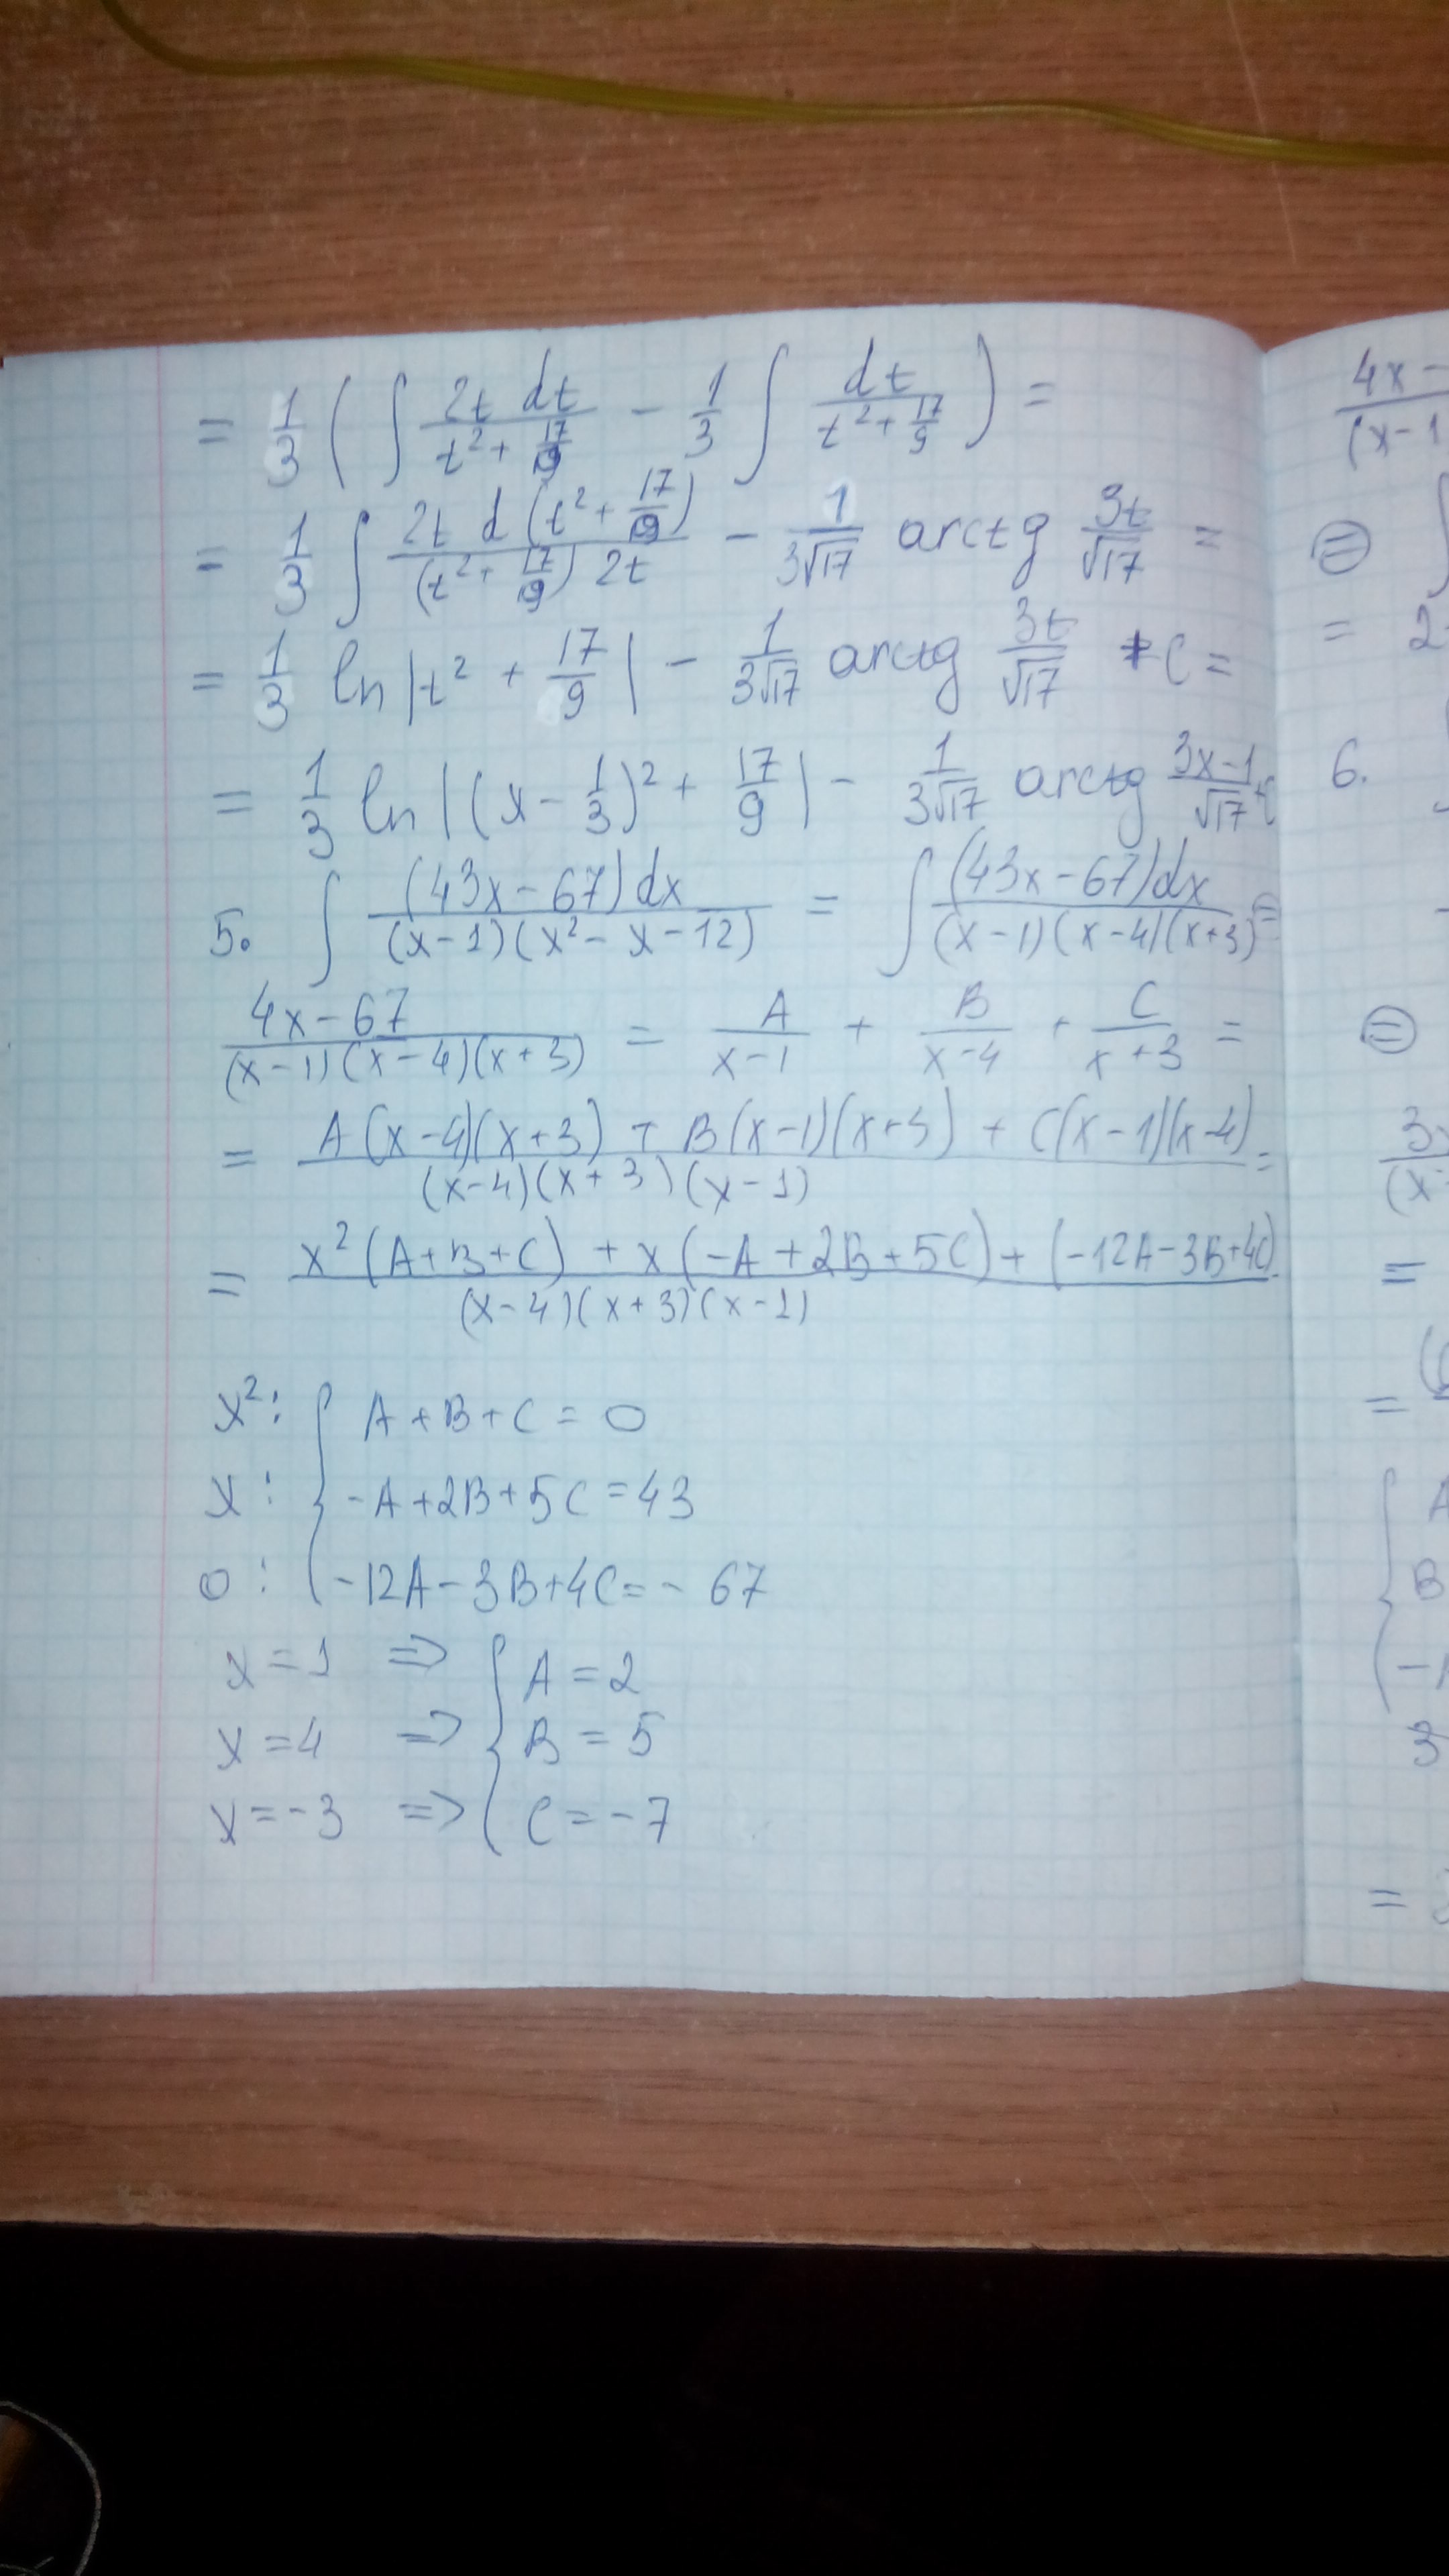 = 1/3 ( ∫ 2t dt / (t² + 17/9) − 1/3 ∫ dt / (t² + 17/9) ) =
= 1/3 ∫ 2t d(t² + 17/9) / ((t² + 17/9) 2t) − 1/(3√17) arctg 3t/√17 =
= 1/3 ln |t² + 17/9| − 1/(3√17) arctg 3t/√17 + C =
= 1/3 ln |(x − 1/3)² + 17/9| − 1/(3√17) arctg (3x−1)/√17 + C
5. ∫ (43x − 67)dx / ((x−1)(x² − x − 12)) = ∫ (43x − 67)dx / ((x−1)(x−4)(x+3)) =
(4x − 67) / ((x−1)(x−4)(x+3)) = A/(x−1) + B/(x−4) + C/(x+3) =
= (A(x−4)(x+3) + B(x−1)(x+3) + C(x−1)(x−4)) / ((x−4)(x+3)(x−1)) =
= (x²(A+B+C) + x(−A+2B+5C) + (−12A−3B+4C)) / ((x−4)(x+3)(x−1))
x²: { A+B+C = 0
x: −A+2B+5C = 43
0: −12A−3B+4C = −67
x = 1 => { A = 2
x = 4 => B = 5
x = −3 => C = −7
4x −
(x−1
⊜ ∫
= 2
6.
⊜
3
(x
=
=
A
B
−
3
=